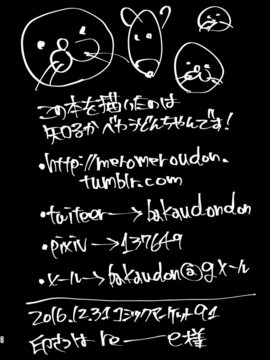 この本を描いたのは
矢口るかべやうどんちゃんです!
・http://meromeroudon.
tumblr.com
・twiteer→bakaudondon
・pixiv→137649
・メール→bakaudon@gメール
2016.12.31 コミックマーケット91
印さつは re——e様
8